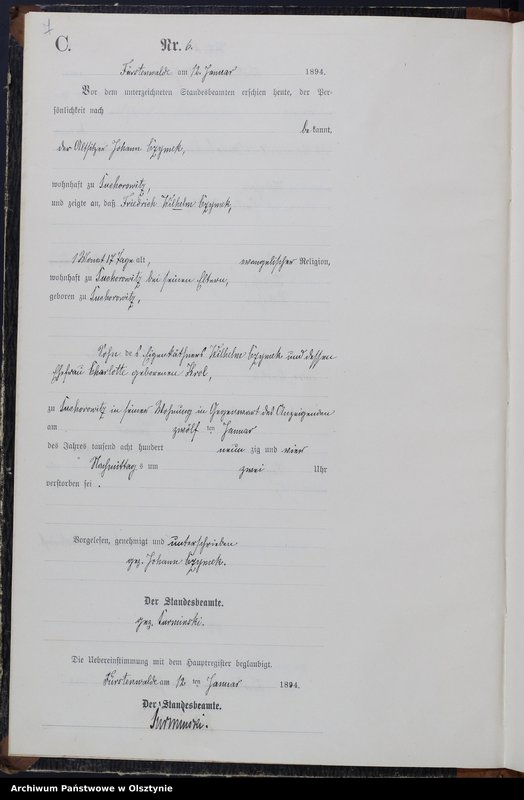 7
C.
Nr. 6.
Fürstenwalde am 12. Januar 1894.
Vor dem unterzeichneten Standesbeamten erschien heute, der Per-
sönlichkeit nach
bekannt,
der Altsitzer Johann Czymek,
wohnhaft zu Suchorowitz,
und zeigte an, daß Friedrich Wilhelm Czymek,
1 Monat 17 Tage alt, evangelischer Religion,
wohnhaft zu Suchorowitz bei seinen Eltern,
geboren zu Suchorowitz,
Sohn des Eigenkäthners Wilhelm Czymek und dessen
Ehefrau Charlotte geborenen Krol,
zu Suchorowitz in seiner Wohnung in Gegenwart des Anzeigenden
am zwölf ten Januar
des Jahres tausend acht hundert neun zig und vier
Nachmittag s um zwei Uhr
verstorben sei.
Vorgelesen, genehmigt und unterschrieben
gez. Johann Czymek.
Der Standesbeamte.
gez.
Die Uebereinstimmung mit dem Hauptregister beglaubigt.
Fürstenwalde am 12 ten Januar 1894.
Der Standesbeamte.
Archiwum Państwowe w Olsztynie